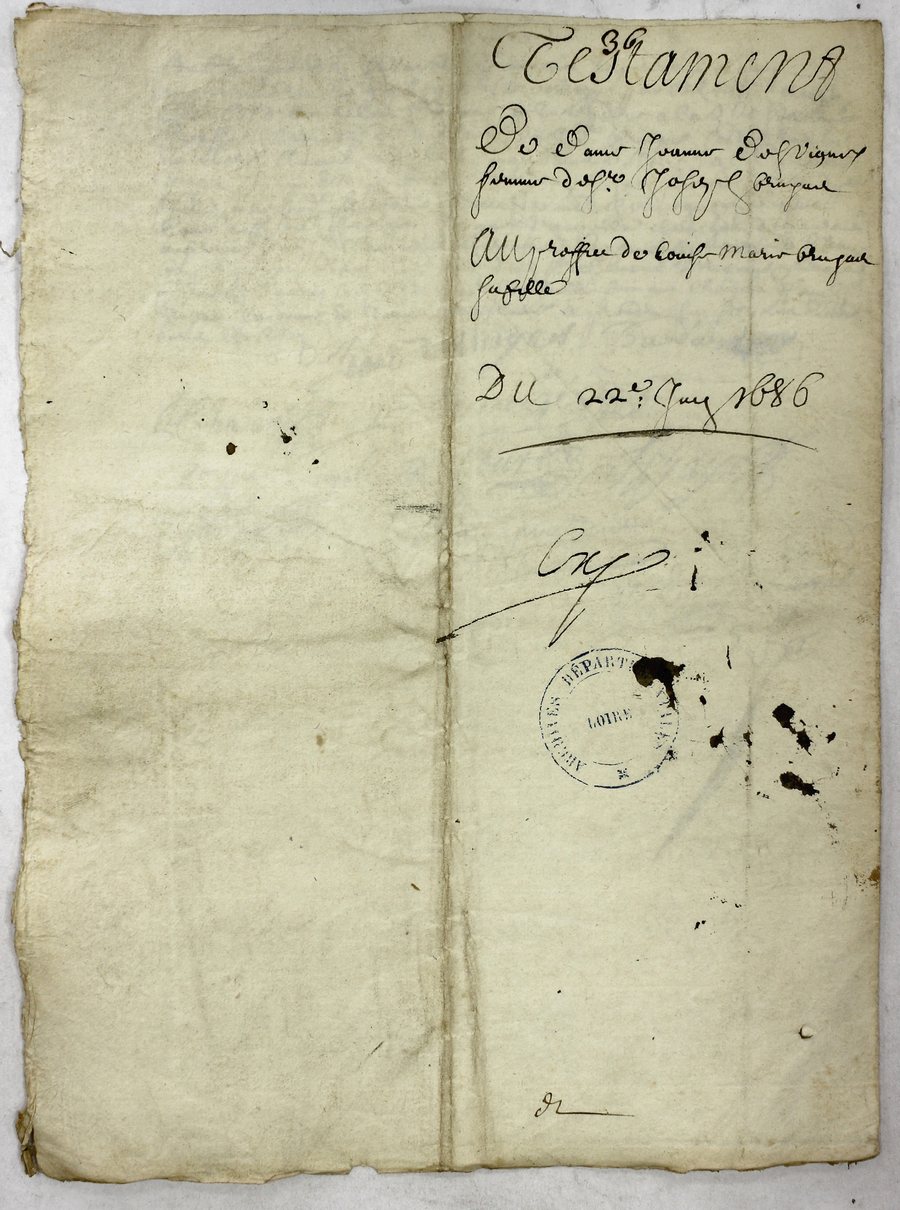 36
Testament
De dame Jeanne Desvignes
femme de sr. Joseph
Au proffict de Louise Marie
sa fille
DU 22e. Juin 1686
ARCHIVES DÉPARTEMENTALES
LOIRE